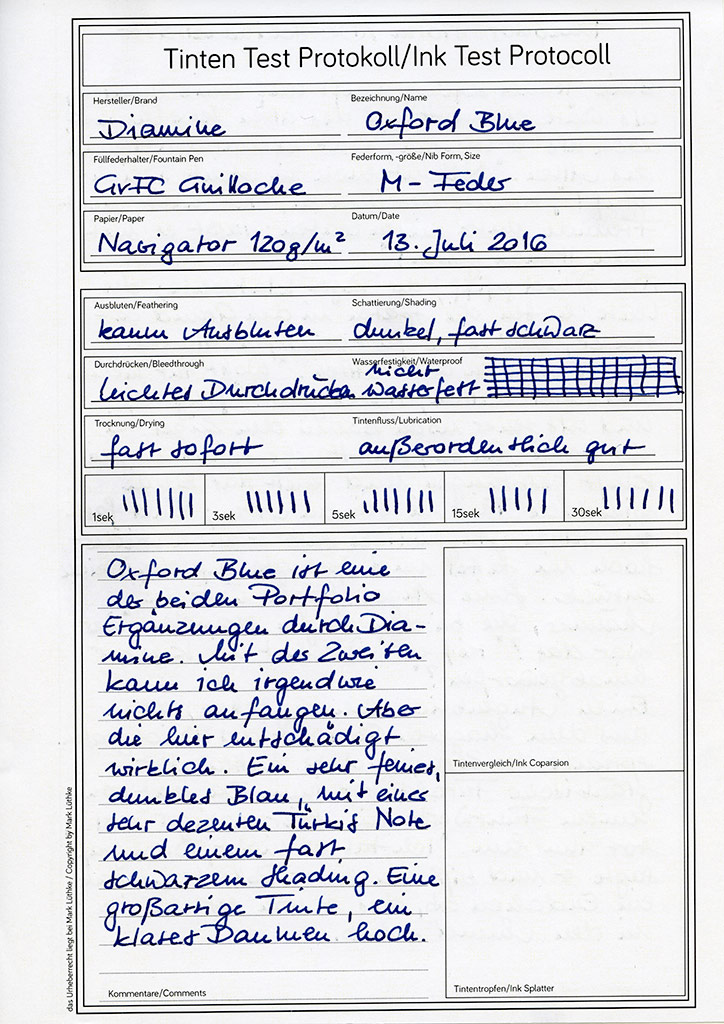 Tinten Test Protokoll/Ink Test Protocoll
Hersteller/Brand
Diamine
Bezeichnung/Name
Oxford Blue
Füllfederhalter/Fountain Pen
GvFC Guilloche
Federform, -größe/Nib Form, Size
M - Feder
Papier/Paper
Navigator 120g/m²
Datum/Date
13. Juli 2016
Ausbluten/Feathering
kaum Ausbluten
Schattierung/Shading
dunkel, fast schwarz
Durchdrücken/Bleedthrough
leichtes Durchdrücken
Wasserfestigkeit/Waterproof
nicht
wasserfest
Trocknung/Drying
fast sofort
Tintenfluss/Lubrication
außerordentlich gut
1sek
3sek
5sek
15sek
30sek
Oxford Blue ist eine
der beiden Portfolio
Ergänzungen durch Dia-
mine. Mit der Zweiten
kann ich irgendwie
nichts anfangen. Aber
die hier entschädigt
wirklich. Ein sehr feines,
dunkles Blau, mit einer
sehr dezenten Türkis Note
und einem fast
schwarzem Shading. Eine
großartige Tinte, ein
klares Daumen hoch.
Kommentare/Comments
Tintenvergleich/Ink Coparsion
Tintentropfen/Ink Splatter
das Urheberrecht liegt bei Mark Lüthke / Copyright by Mark Lüthke